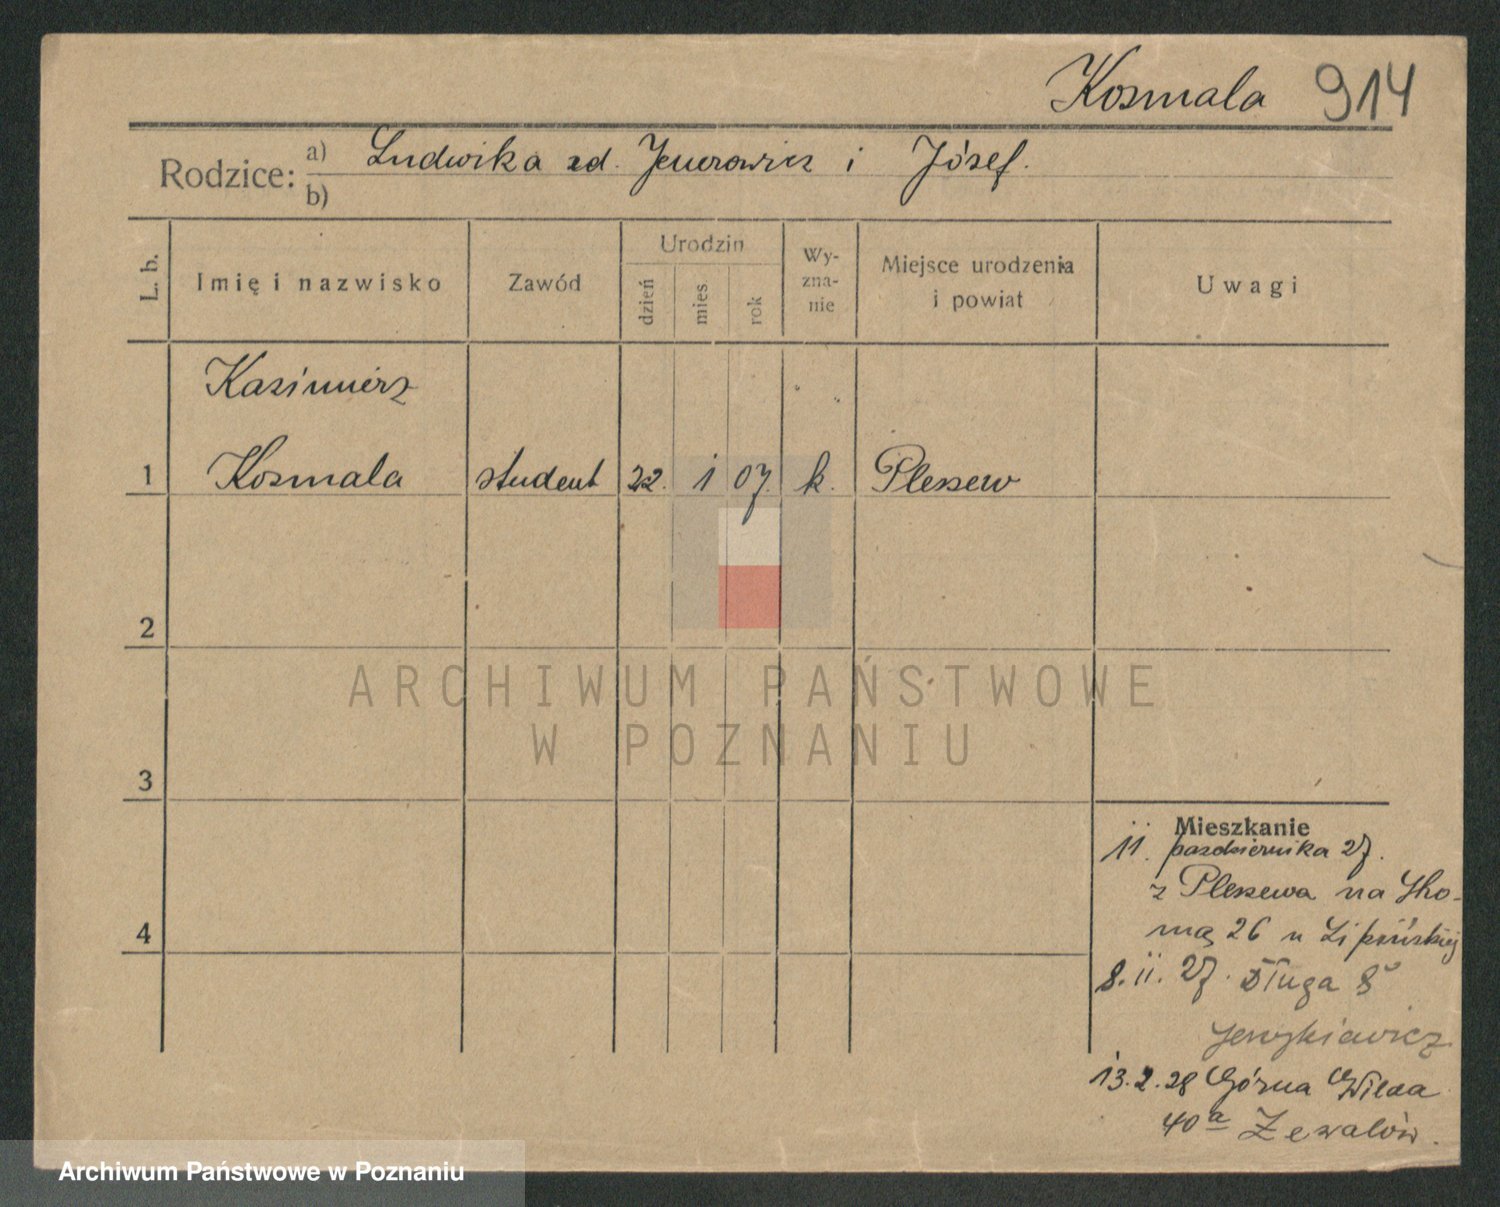 Kosmala 914
Rodzice: a) Ludwika zd. i Józef.
b)
L. b.
Imię i nazwisko
Zawód
Urodzin
dzień
mies
rok
Wy-
zna-
nie
Miejsce urodzenia
i powiat
Uwagi
Kazimierz
1 Kosmala student 22. 1 07. k. Pleszew
2
ARCHIWUM PAŃSTWOWE
W POZNANIU
3
4
Mieszkanie
11. października 27.
z Pleszewa na
26 u Lipińskiej
8.11.27. Długa 8
13.2.28 Górna Wilda
40a
Archiwum Państwowe w Poznaniu